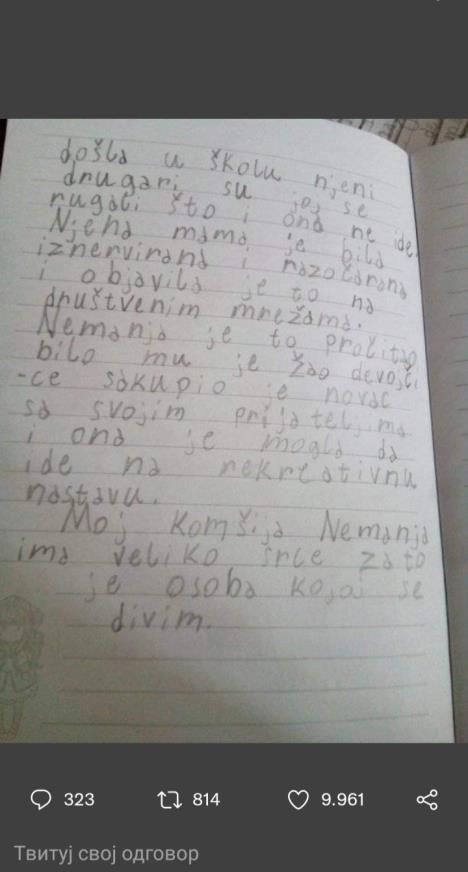 došla u školu njeni
drugari su joj se
rugali što i ona ne ide.
Njena mama je bila
iznervirana i razočarana
i objavila je to na
društvenim mrežama.
Nemanja je to pročitao
bilo mu je žao devojči
-ce sakupio je novac
sa svojim prijateljima
i ona je mogla da
ide na rekreativnu
nastavu.
Moj komšija Nemanja
ima veliko srce zato
je osoba kojoj se
divim.
323 814 9.961
Твитуј свој одговор